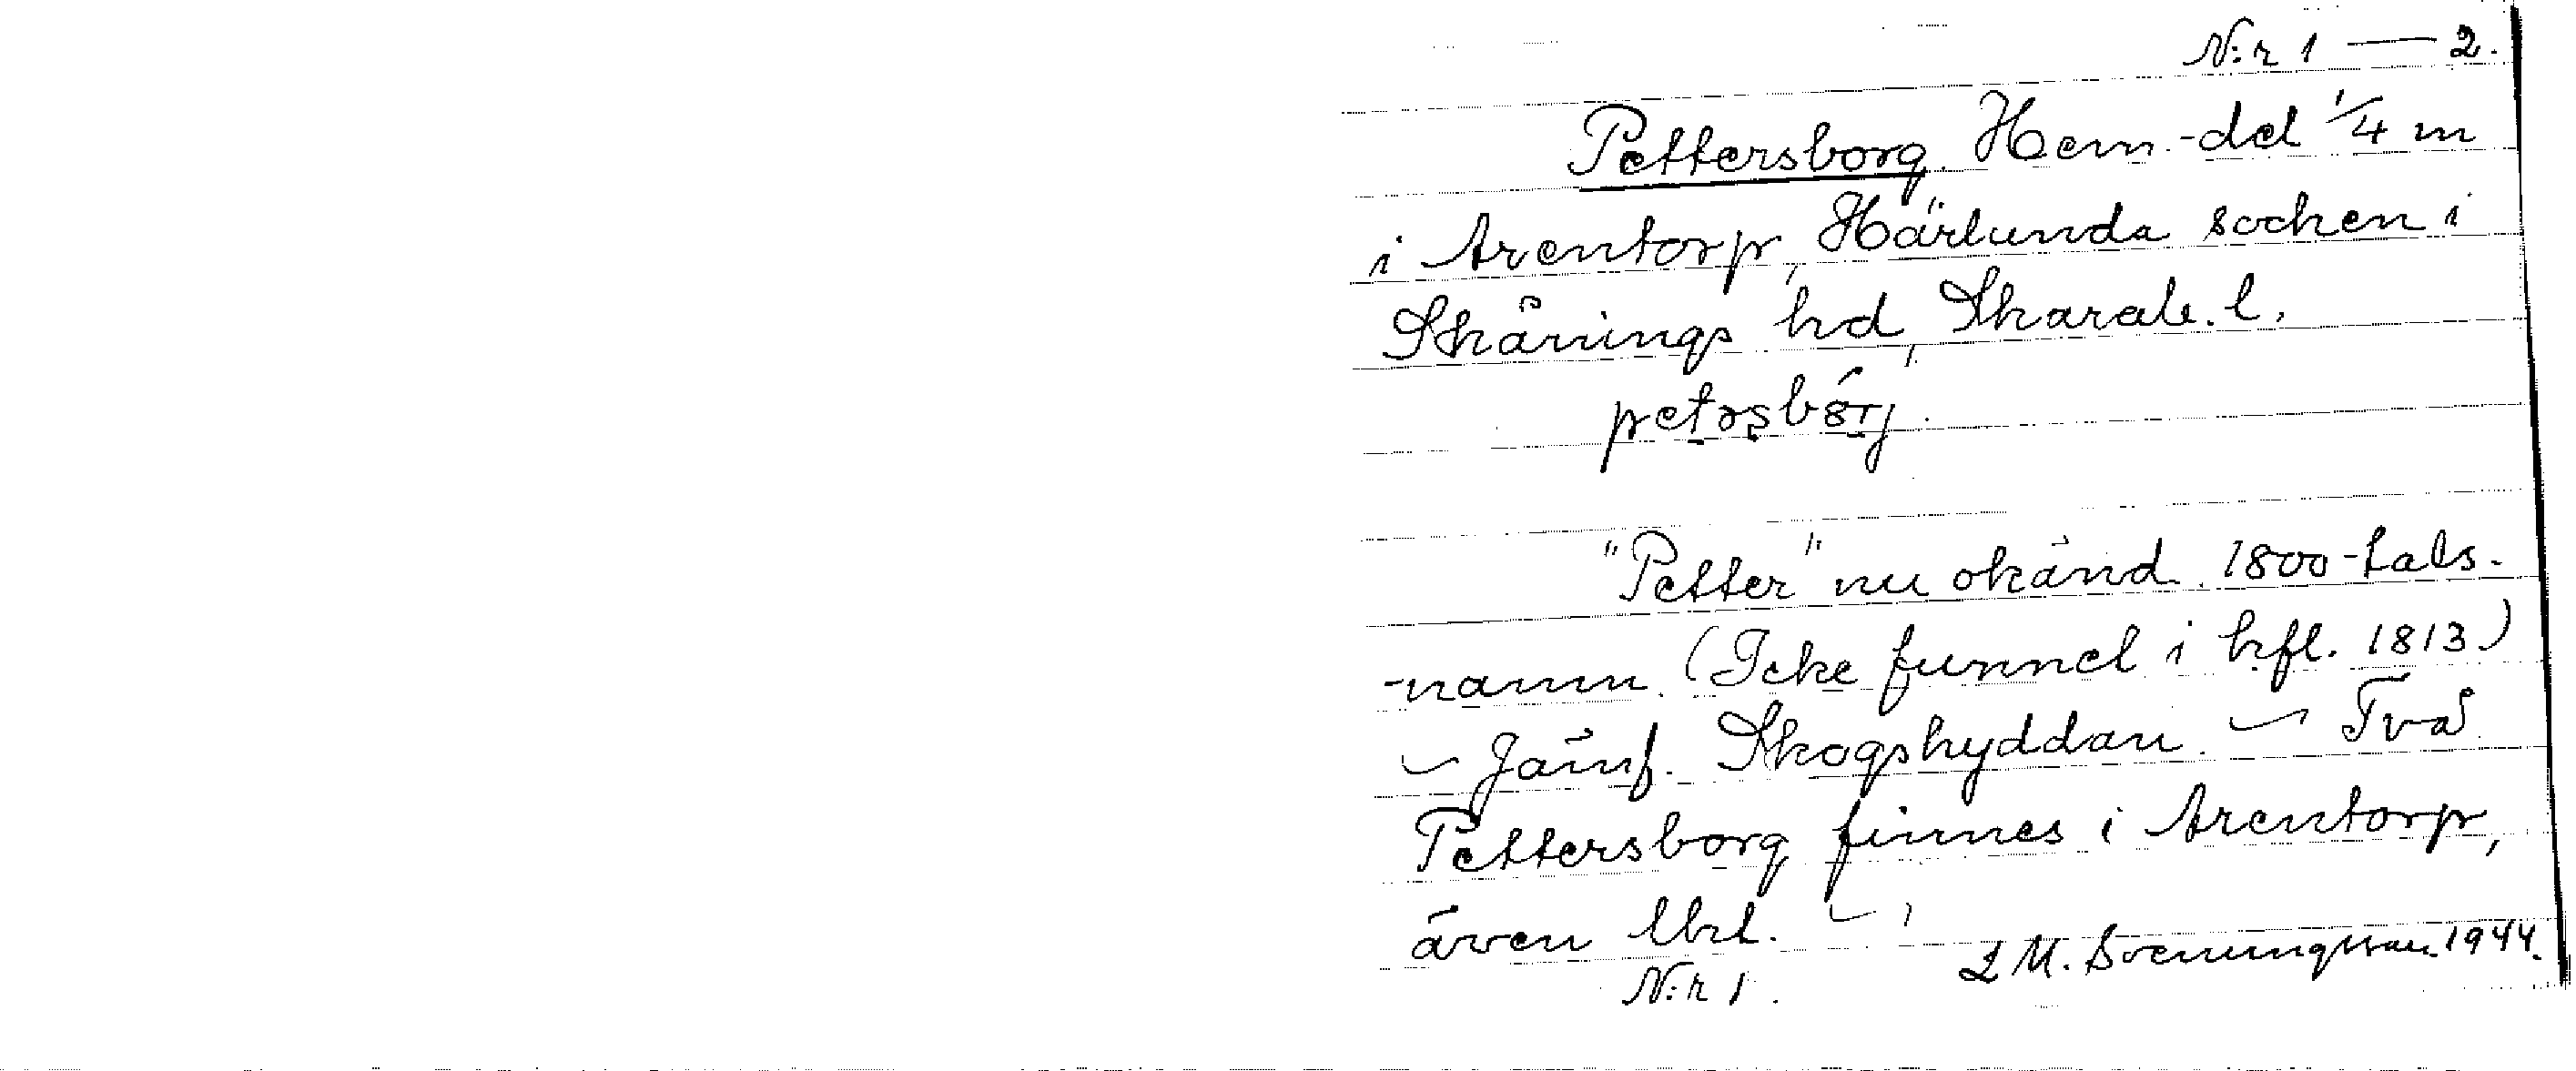 N:r 1 — 2.
Pettersborg. Hem.-del 1/4 m
i Arentorp, Härlunda socken i
Skånings hd, Skarab. l.
"Petter" nu okänd. 1800-tals-
-namn. (Icke funnet i hfl. 1813)
— Jämf. Skogshyddan. — Två
Pettersborg finnes i Arentorp,
även Ubd. —
N:r 1. L M. Svenungsson 1944.